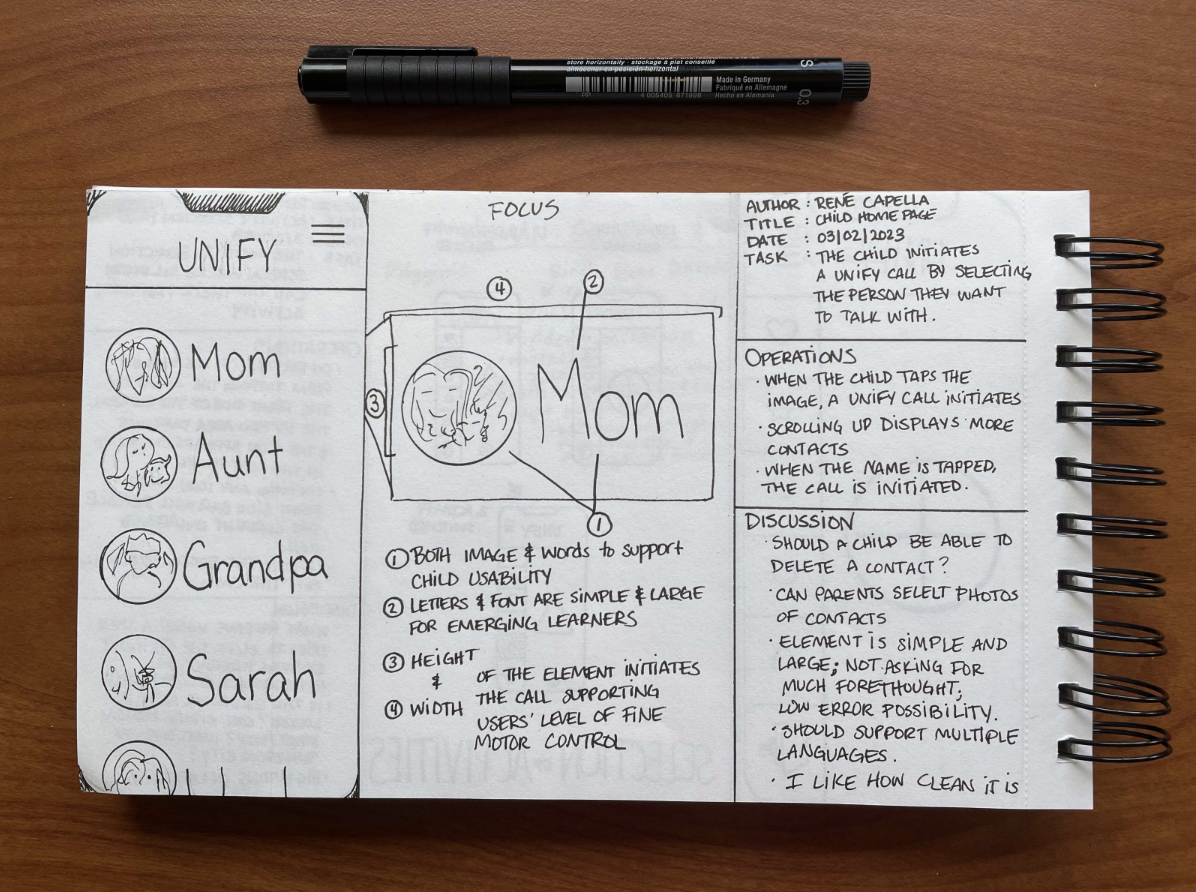 store horizontally · stockage à plat conseillé
almacenar en posición horizontal
Made in Germany
Fabriqué en Allemagne
Hecho en Alemania
PP
4 005403 671998
S
0.3
UNIFY
Mom
Aunt
Grandpa
Sarah
FOCUS
4
2
3
Mom
1
1 BOTH IMAGE & WORDS to support
CHILD USABILITY
2 LETTERS & FONT ARE SIMPLE & LARGE
FOR EMERGING LEARNERS
3 HEIGHT
&
4 WIDTH
OF THE ELEMENT INITIATES
THE CALL SUPPORTING
USERS' LEVEL OF FINE
MOTOR CONTROL
AUTHOR : RENÉ CAPELLA
TITLE : CHILD HOME PAGE
DATE : 03/02/2023
TASK : THE CHILD INITIATES
A UNIFY CALL BY SELECTING
THE PERSON THEY WANT
TO TALK WITH.
OPERATIONS
· WHEN THE CHILD TAPS THE
IMAGE, A UNIFY CALL INITIATES
· SCROLLING UP DISPLAYS MORE
CONTACTS
· WHEN THE NAME IS TAPPED,
THE CALL IS INITIATED.
DISCUSSION
· SHOULD A CHILD BE ABLE TO
DELETE A CONTACT?
· CAN PARENTS SELELT PHOTOS
OF CONTACTS
· ELEMENT IS SIMPLE AND
LARGE; NOT ASKING FOR
MUCH FORETHOUGHT,
LOW ERROR POSSIBILITY.
· SHOULD SUPPORT MULTIPLE
LANGUAGES.
· I LIKE HOW CLEAN IT IS